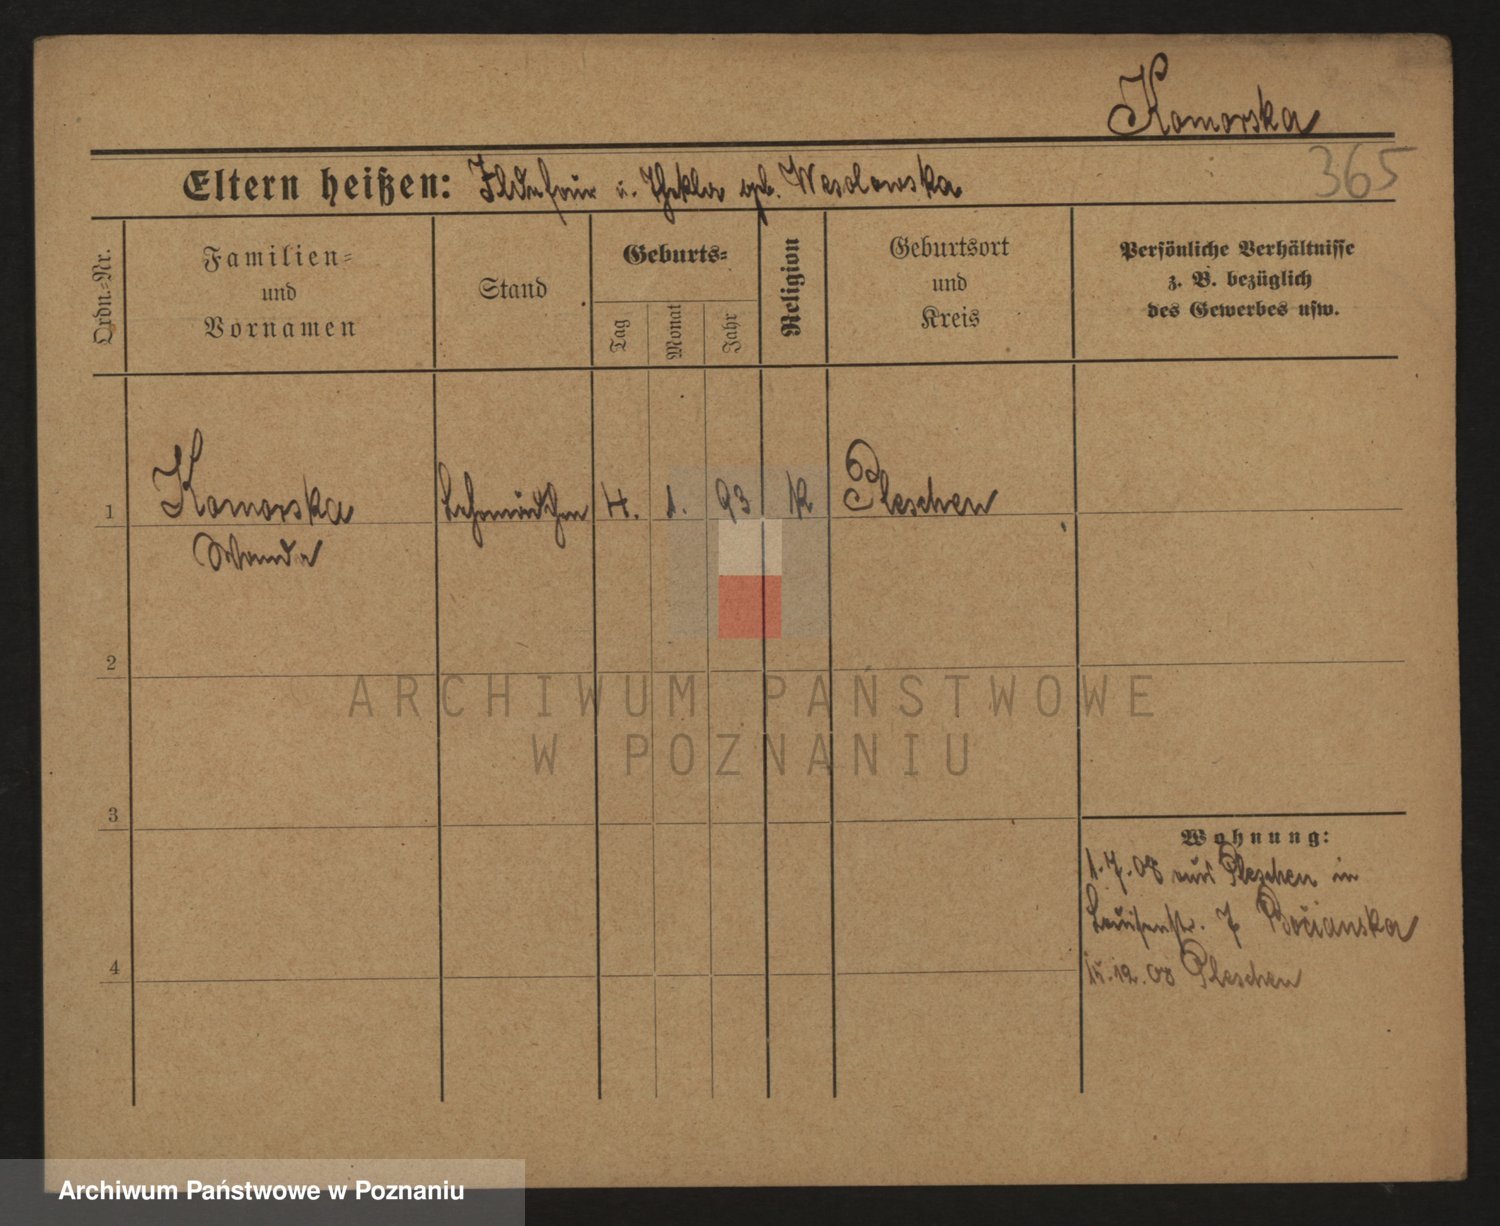 Komorska
365
Eltern heißen: Ildefons u. Thekla geb. Wesolowska
Ordn.-Nr.
Familien-
und
Vornamen
Stand
Geburts-
Tag
Monat
Jahr
Religion
Geburtsort
und
Kreis
Persönliche Verhältnisse
z. B. bezüglich
des Gewerbes usw.
1 Komorska Lehrmädchen 4. 1. 93 k Pleschen
Wanda
2
ARCHIWUM PAŃSTWOWE
W POZNANIU
3
Wohnung:
1.7.08 aus Pleschen in
Louisenstr. 7 Bocianska
4
15.12.08 Pleschen
Archiwum Państwowe w Poznaniu